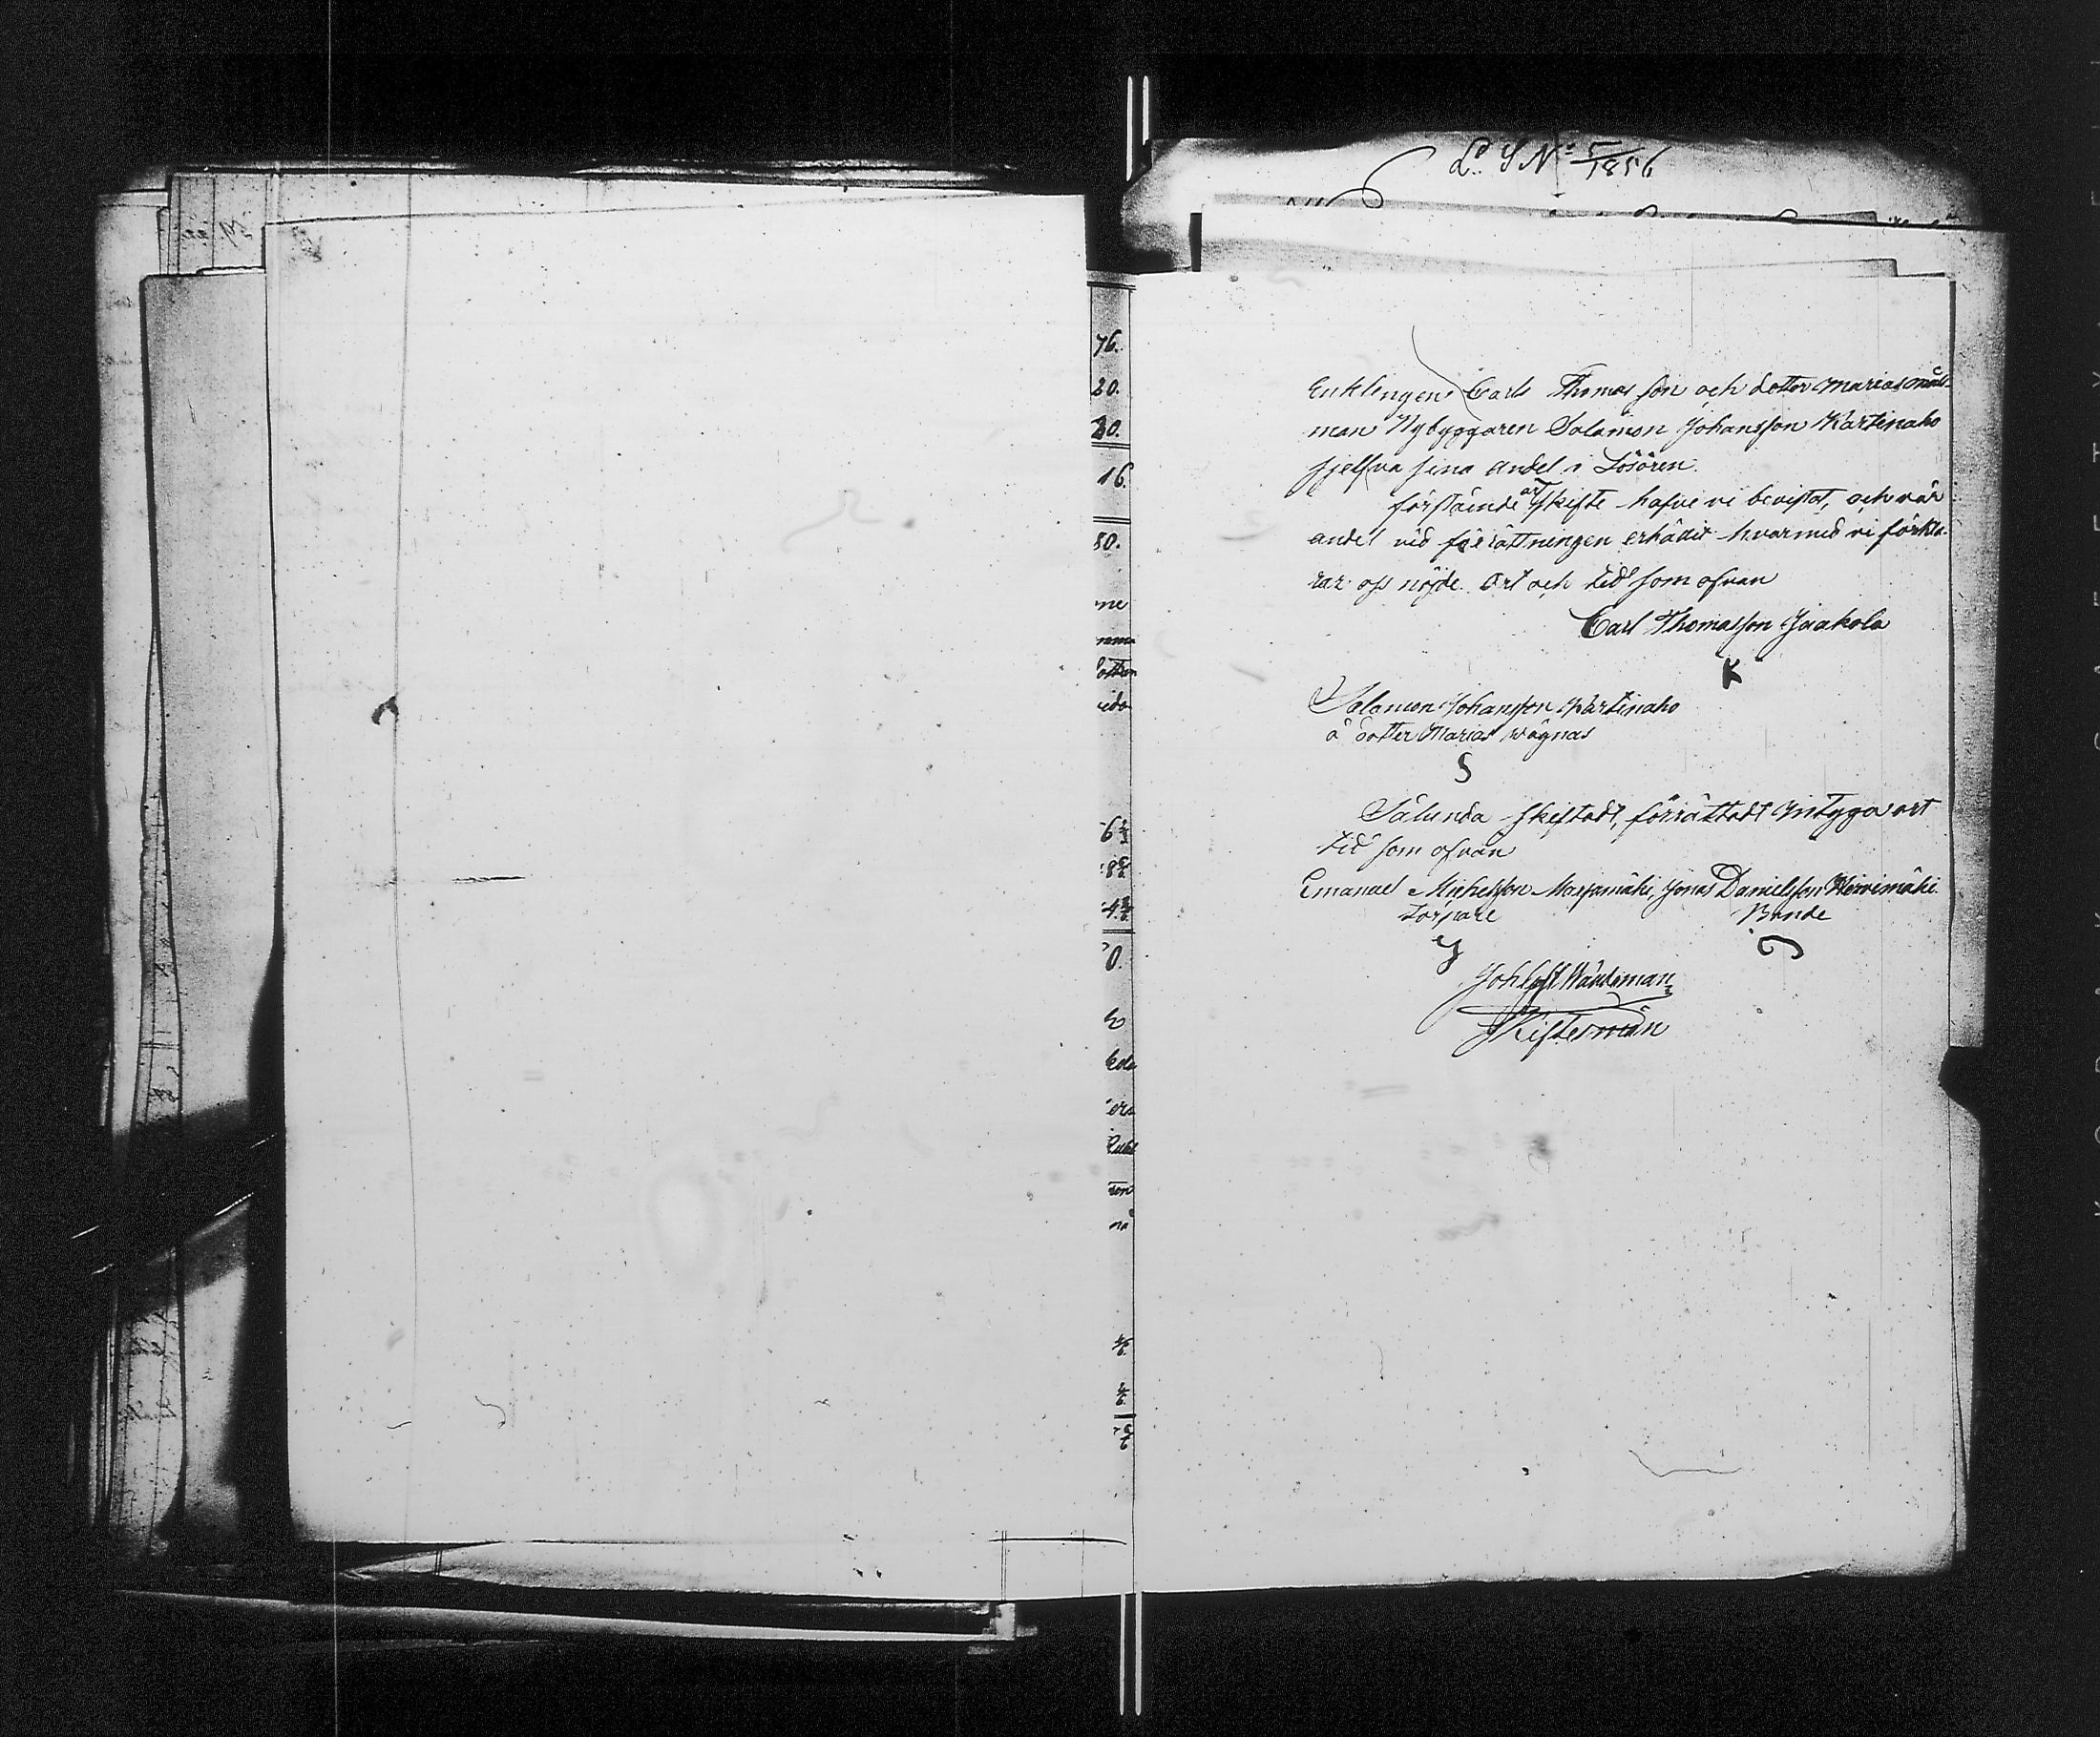 L. S N: 5/1856
76.
20.
30.
16.
50.
Enklingen Carls Thomasson och dotter Marias måls-
man Nybyggaren Salamon Johansson Kartinaho
sjelfva sina andel i Lösören.
förstående arfskifte hafve vi bevistat, och vår
andel vid förrättningen erhådit hvarmed vi förkla-
rar oss nöjde. Ort och tid som ofvan
Carl Thomasson Jaakola
K
Salamon Johansson Kartinaho
å dotter Marias vägnas
S
Sålunda skiftadt, förrättadt intyga ort
tid som ofvan
Emanuel Michelsson Marjamäki, Jonas Danielsson Hirvimäki
Torpare Bonde
Joh Wändeman
Skiftesman